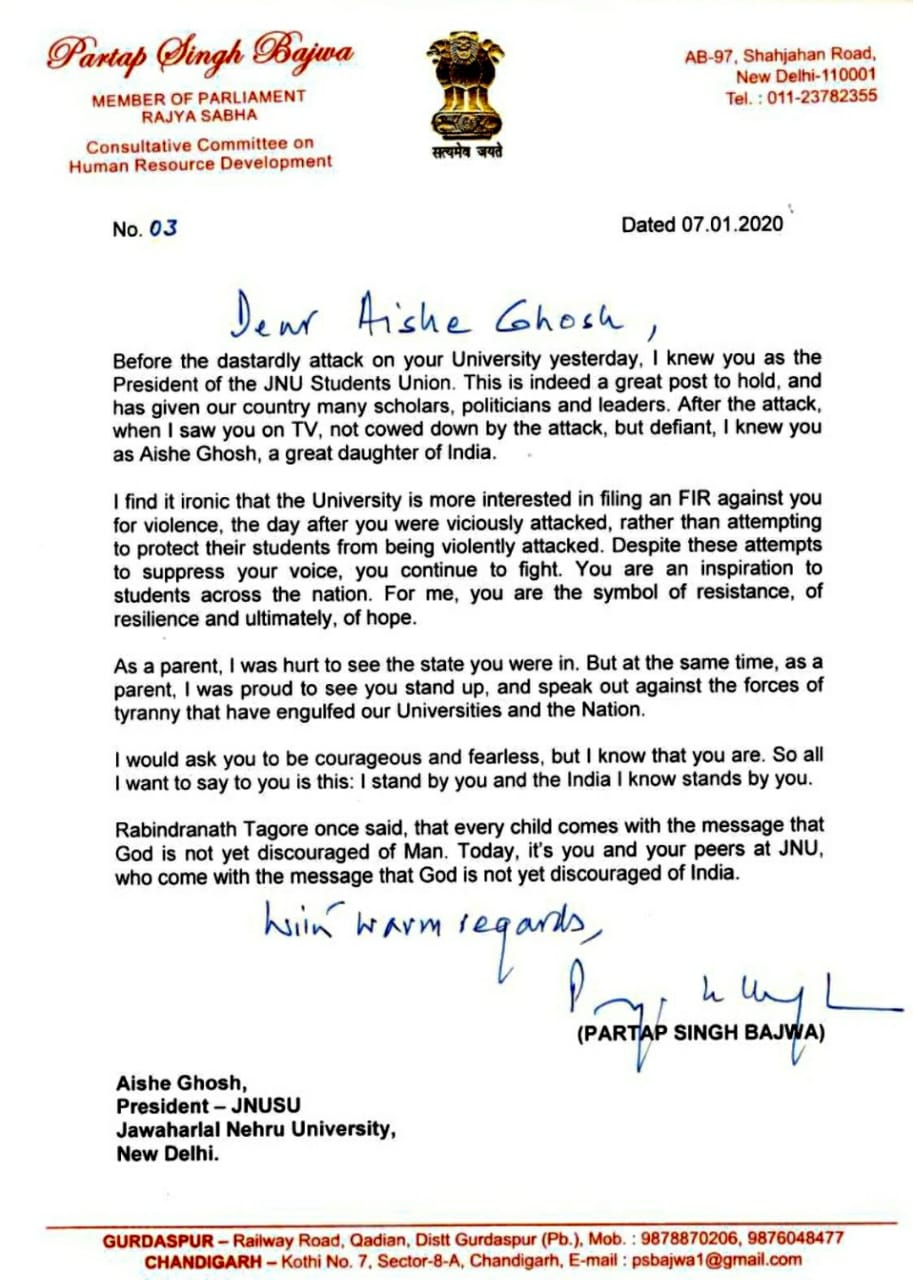 Partap Singh Bajwa
MEMBER OF PARLIAMENT
RAJYA SABHA
Consultative Committee on
Human Resource Development
सत्यमेव जयते
AB-97, Shahjahan Road,
New Delhi-110001
Tel. : 011-23782355
No. 03
Dated 07.01.2020
Dear Aishe Ghosh,
Before the dastardly attack on your University yesterday, I knew you as the
President of the JNU Students Union. This is indeed a great post to hold, and
has given our country many scholars, politicians and leaders. After the attack,
when I saw you on TV, not cowed down by the attack, but defiant, I knew you
as Aishe Ghosh, a great daughter of India.
I find it ironic that the University is more interested in filing an FIR against you
for violence, the day after you were viciously attacked, rather than attempting
to protect their students from being violently attacked. Despite these attempts
to suppress your voice, you continue to fight. You are an inspiration to
students across the nation. For me, you are the symbol of resistance, of
resilience and ultimately, of hope.
As a parent, I was hurt to see the state you were in. But at the same time, as a
parent, I was proud to see you stand up, and speak out against the forces of
tyranny that have engulfed our Universities and the Nation.
I would ask you to be courageous and fearless, but I know that you are. So all
I want to say to you is this: I stand by you and the India I know stands by you.
Rabindranath Tagore once said, that every child comes with the message that
God is not yet discouraged of Man. Today, it's you and your peers at JNU,
who come with the message that God is not yet discouraged of India.
With warm regards,
(PARTAP SINGH BAJWA)
Aishe Ghosh,
President – JNUSU
Jawaharlal Nehru University,
New Delhi.
GURDASPUR – Railway Road, Qadian, Distt Gurdaspur (Pb.), Mob. : 9878870206, 9876048477
CHANDIGARH – Kothi No. 7, Sector-8-A, Chandigarh, E-mail : psbajwa1@gmail.com